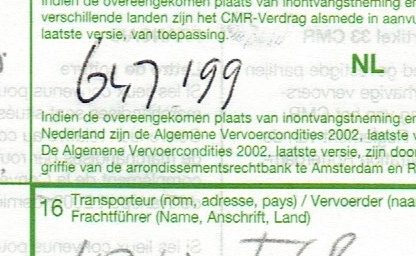 Indien de overeengekomen plaats van inontvangstneming en
verschillende landen zijn het CMR-Verdrag alsmede in aanv
laatste versie, van toepassing.
NL
647199
Indien de overeengekomen plaats van inontvangstneming er
Nederland zijn de Algemene Vervoercondities 2002, laatste v
De Algemene Vervoercondities 2002, laatste versie, zijn door
griffie van de arrondissementsrechtbank te Amsterdam en R
16 Transporteur (nom, adresse, pays) / Vervoerder (naa
Frachtführer (Name, Anschrift, Land)